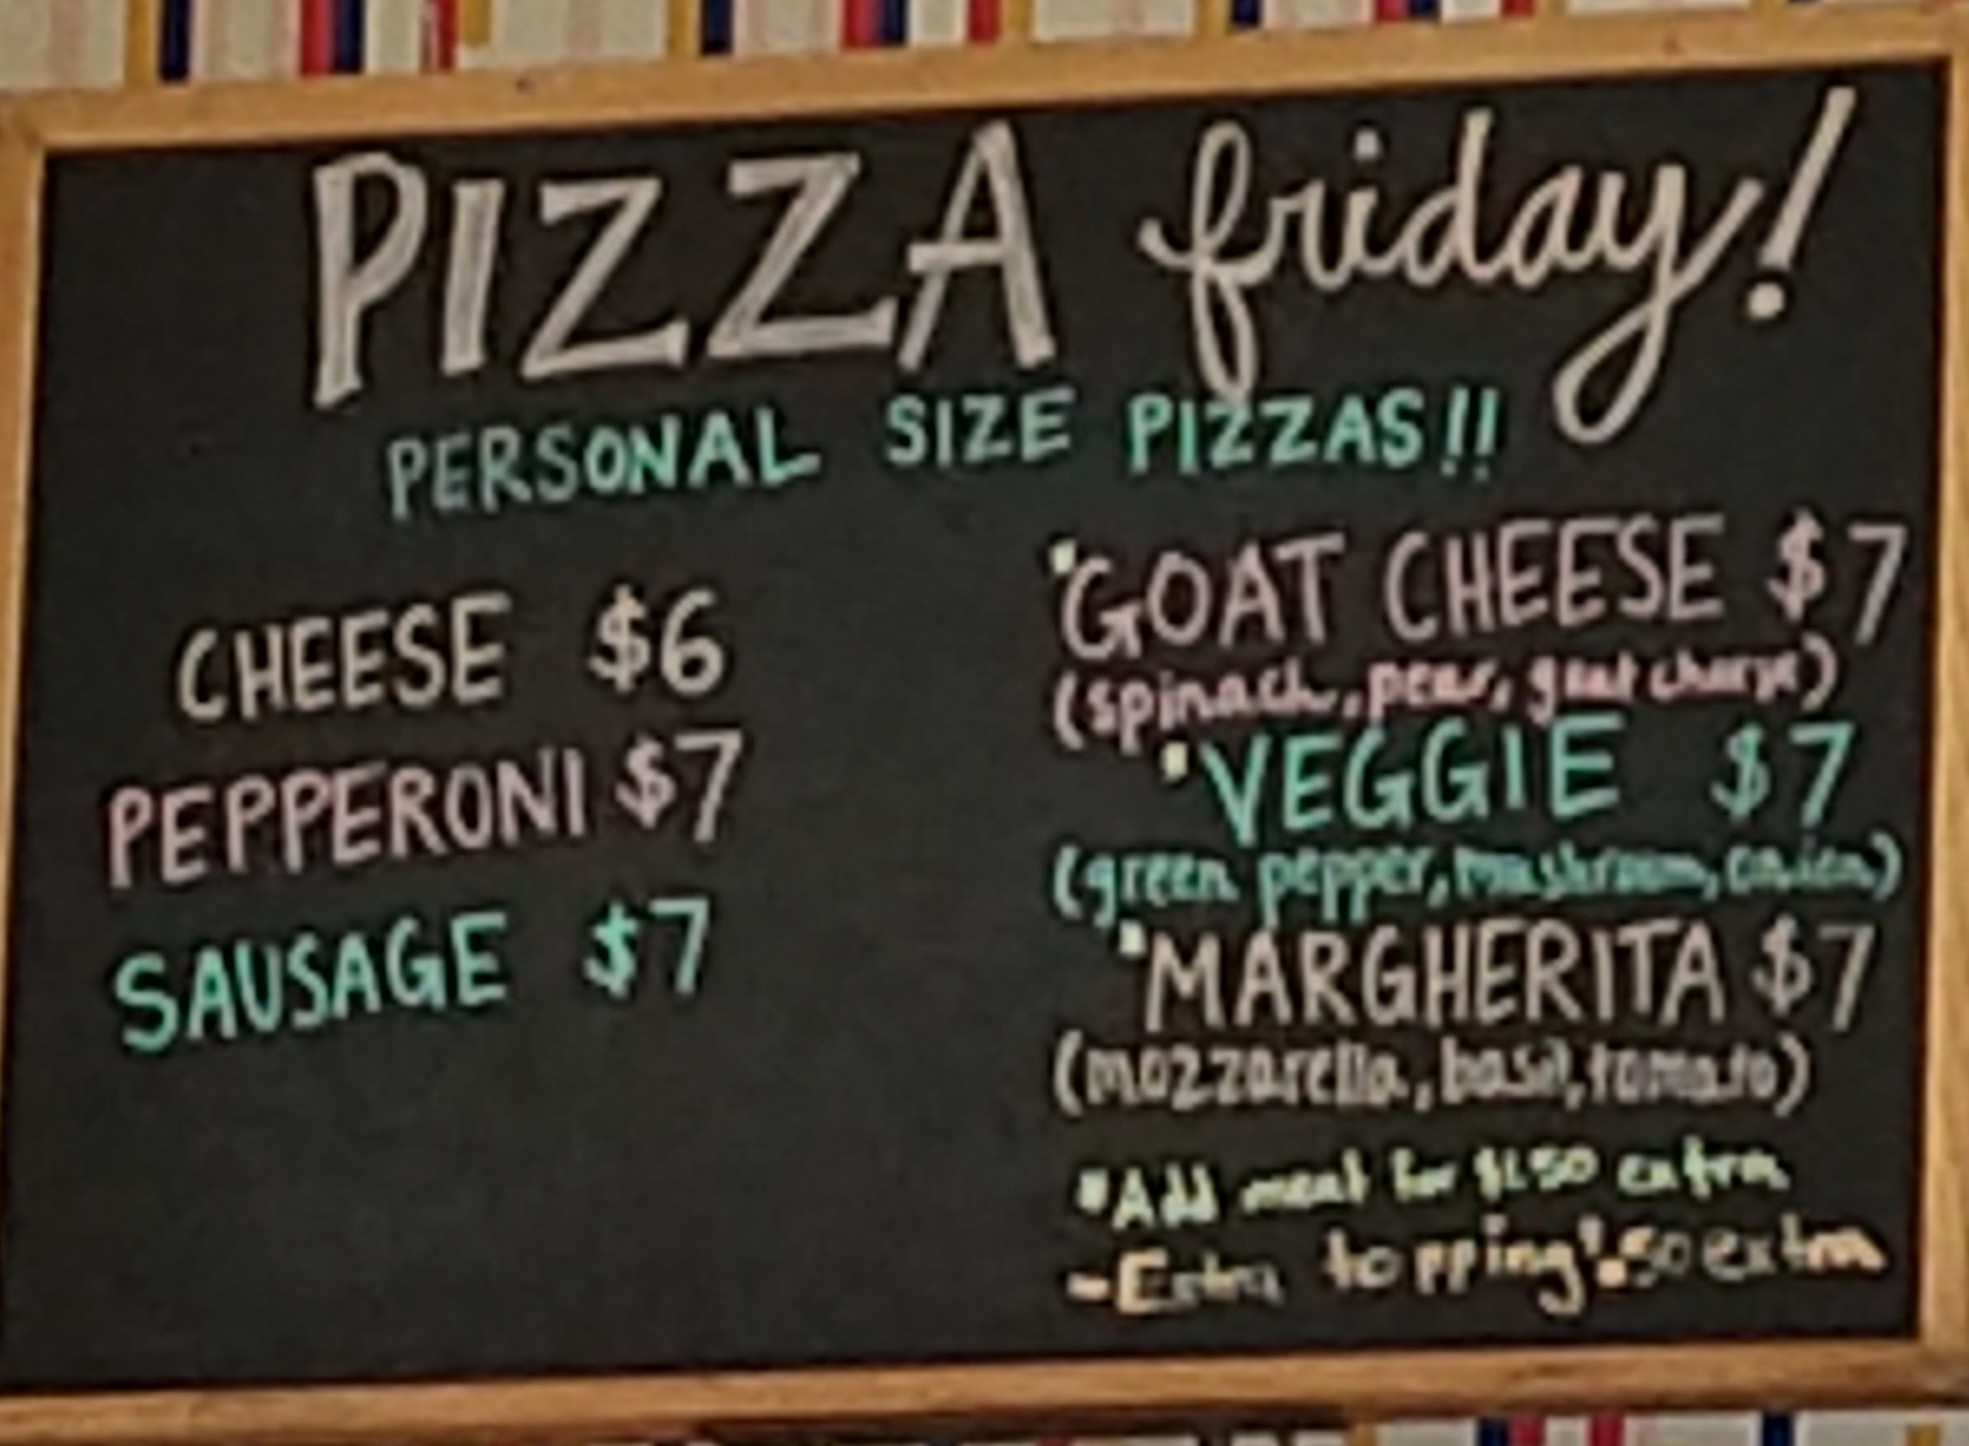 PIZZA friday!
PERSONAL SIZE PIZZAS!!
CHEESE $6
PEPPERONI $7
SAUSAGE $7
*GOAT CHEESE $7
(spinach, pear, goat cheese)
*VEGGIE $7
(green pepper, mushroom, onion)
*MARGHERITA $7
(mozzarella, basil, tomato)
*Add meat for $1.50 extra
-Extra topping .50 extra